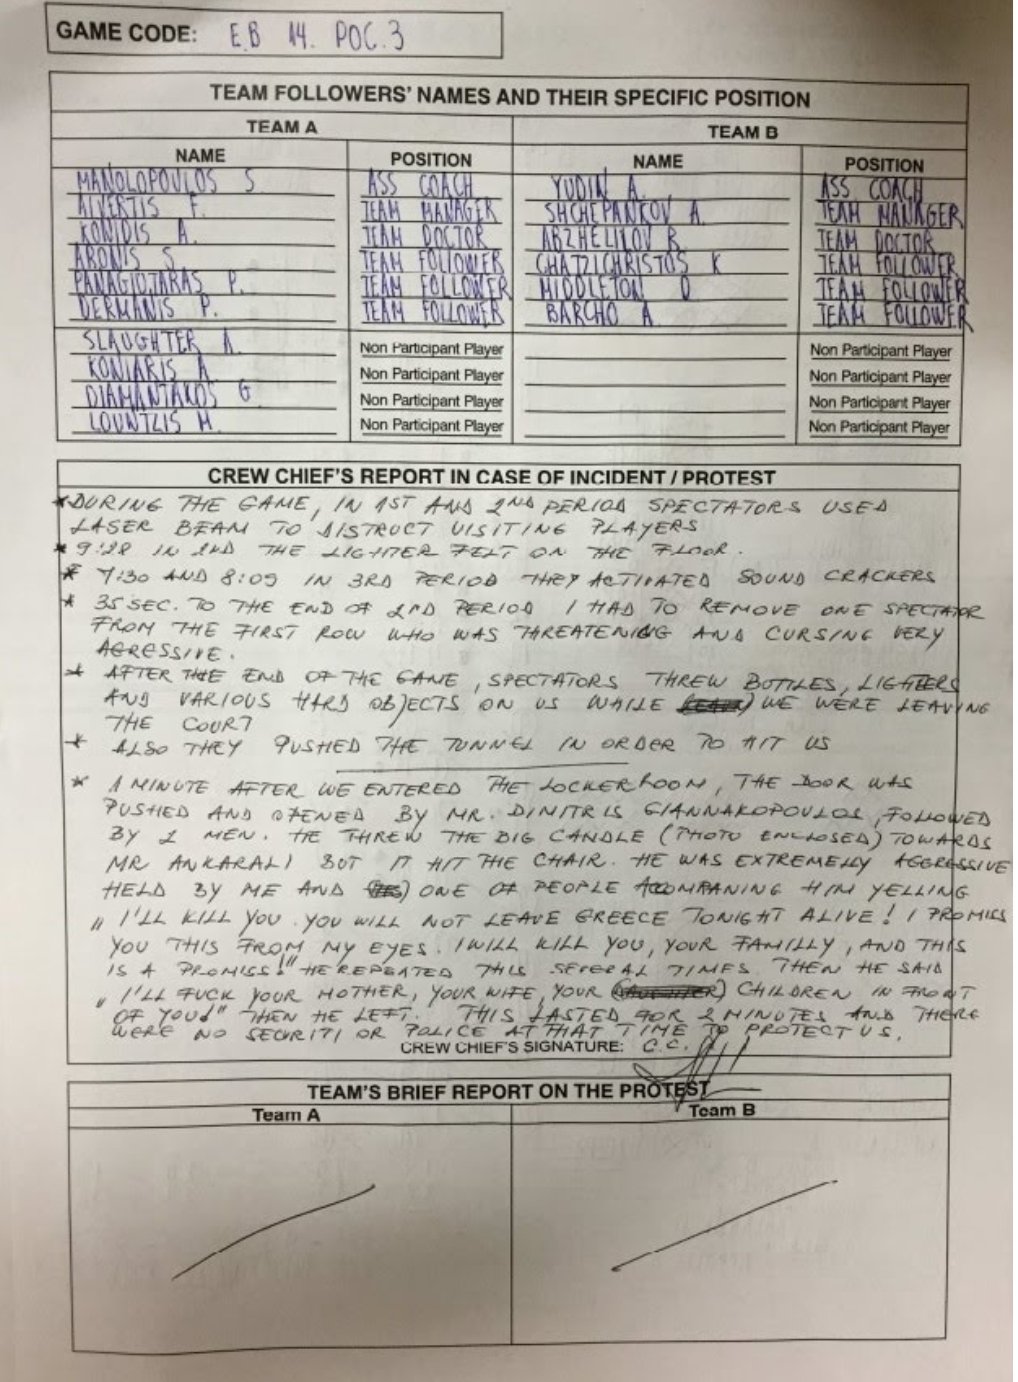 GAME CODE: E.B 14. POC.3
TEAM FOLLOWERS' NAMES AND THEIR SPECIFIC POSITION
TEAM A TEAM B
NAME POSITION NAME POSITION
MANOLOPOULOS S ASS COACH YUDIN A. ASS COACH
ALVERTIS F. TEAM MANAGER SHCHEPANKOV A. TEAM MANAGER
KONIDIS A. TEAM DOCTOR ABZHELILOV R TEAM DOCTOR
ARONIS S TEAM FOLLOWER CHATZICHRISTOS K TEAM FOLLOWER
PANAGIOTARAS P. TEAM FOLLOWER MIDDLETON D TEAM FOLLOWER
DERMANIS P. TEAM FOLLOWER BARCHO A TEAM FOLLOWER
SLAUGHTER A. Non Participant Player Non Participant Player
KONIARIS A Non Participant Player Non Participant Player
DIAMANTAKOS G Non Participant Player Non Participant Player
LOUNTZIS M. Non Participant Player Non Participant Player
CREW CHIEF'S REPORT IN CASE OF INCIDENT / PROTEST
* DURING THE GAME, IN 1ST AND 2ND PERIOD SPECTATORS USED
LASER BEAM TO DISTRUCT VISITING PLAYERS
* 9:28 IN 2ND THE LIGHTER FELT ON THE FLOOR.
* 7:30 AND 8:09 IN 3RD PERIOD THEY ACTIVATED SOUND CRACKERS
* 35 SEC. TO THE END OF 2ND PERIOD I HAD TO REMOVE ONE SPECTATOR
FROM THE FIRST ROW WHO WAS THREATENING AND CURSING VERY
AGRESSIVE.
* AFTER THE END OF THE GAME, SPECTATORS THREW BOTTLES, LIGHTERS
AND VARIOUS HARD OBJECTS ON US WHILE WE WERE LEAVING
THE COURT
* ALSO THEY PUSHED THE TUNNEL IN ORDER TO HIT US
* A MINUTE AFTER WE ENTERED THE LOCKERROOM, THE DOOR WAS
PUSHED AND OPENED BY MR. DIMITRIS GIANNAKOPOULOS, FOLLOWED
BY 2 MEN. HE THREW THE BIG CANDLE (PHOTO ENCLOSED) TOWARDS
MR ANKARALI BUT IT HIT THE CHAIR. HE WAS EXTREMELLY AGGRESSIVE
HELD BY ME AND ONE OF PEOPLE ACOMPANING HIM YELLING
„ I'LL KILL YOU. YOU WILL NOT LEAVE GREECE TONIGHT ALIVE! I PROMISS
YOU THIS FROM MY EYES. I WILL KILL YOU, YOUR FAMILLY, AND THIS
IS A PROMISS!" HE REPEATED THIS SEVERAL TIMES. THEN HE SAID
„ I'LL FUCK YOUR MOTHER, YOUR WIFE, YOUR CHILDREN IN FRONT
OF YOU!" THEN HE LEFT. THIS LASTED FOR 2 MINUTES AND THERE
WERE NO SECURITI OR POLICE AT THAT TIME TO PROTECT US.
CREW CHIEF'S SIGNATURE: C.C.
TEAM'S BRIEF REPORT ON THE PROTEST
Team A Team B